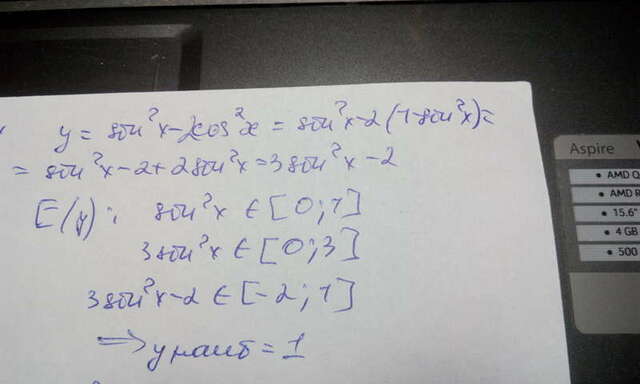 y = sin²x-2cos²x = sin²x-2(1-sin²x)=
= sin²x-2+2sin²x=3sin²x-2
E(y): sin²x ∈ [0;1]
3sin²x ∈ [0;3]
3sin²x-2 ∈ [-2;1]
⇒ y наиб = 1
Aspire
• AMD Q
• AMD R
• 15.6"
• 4 GB
• 500